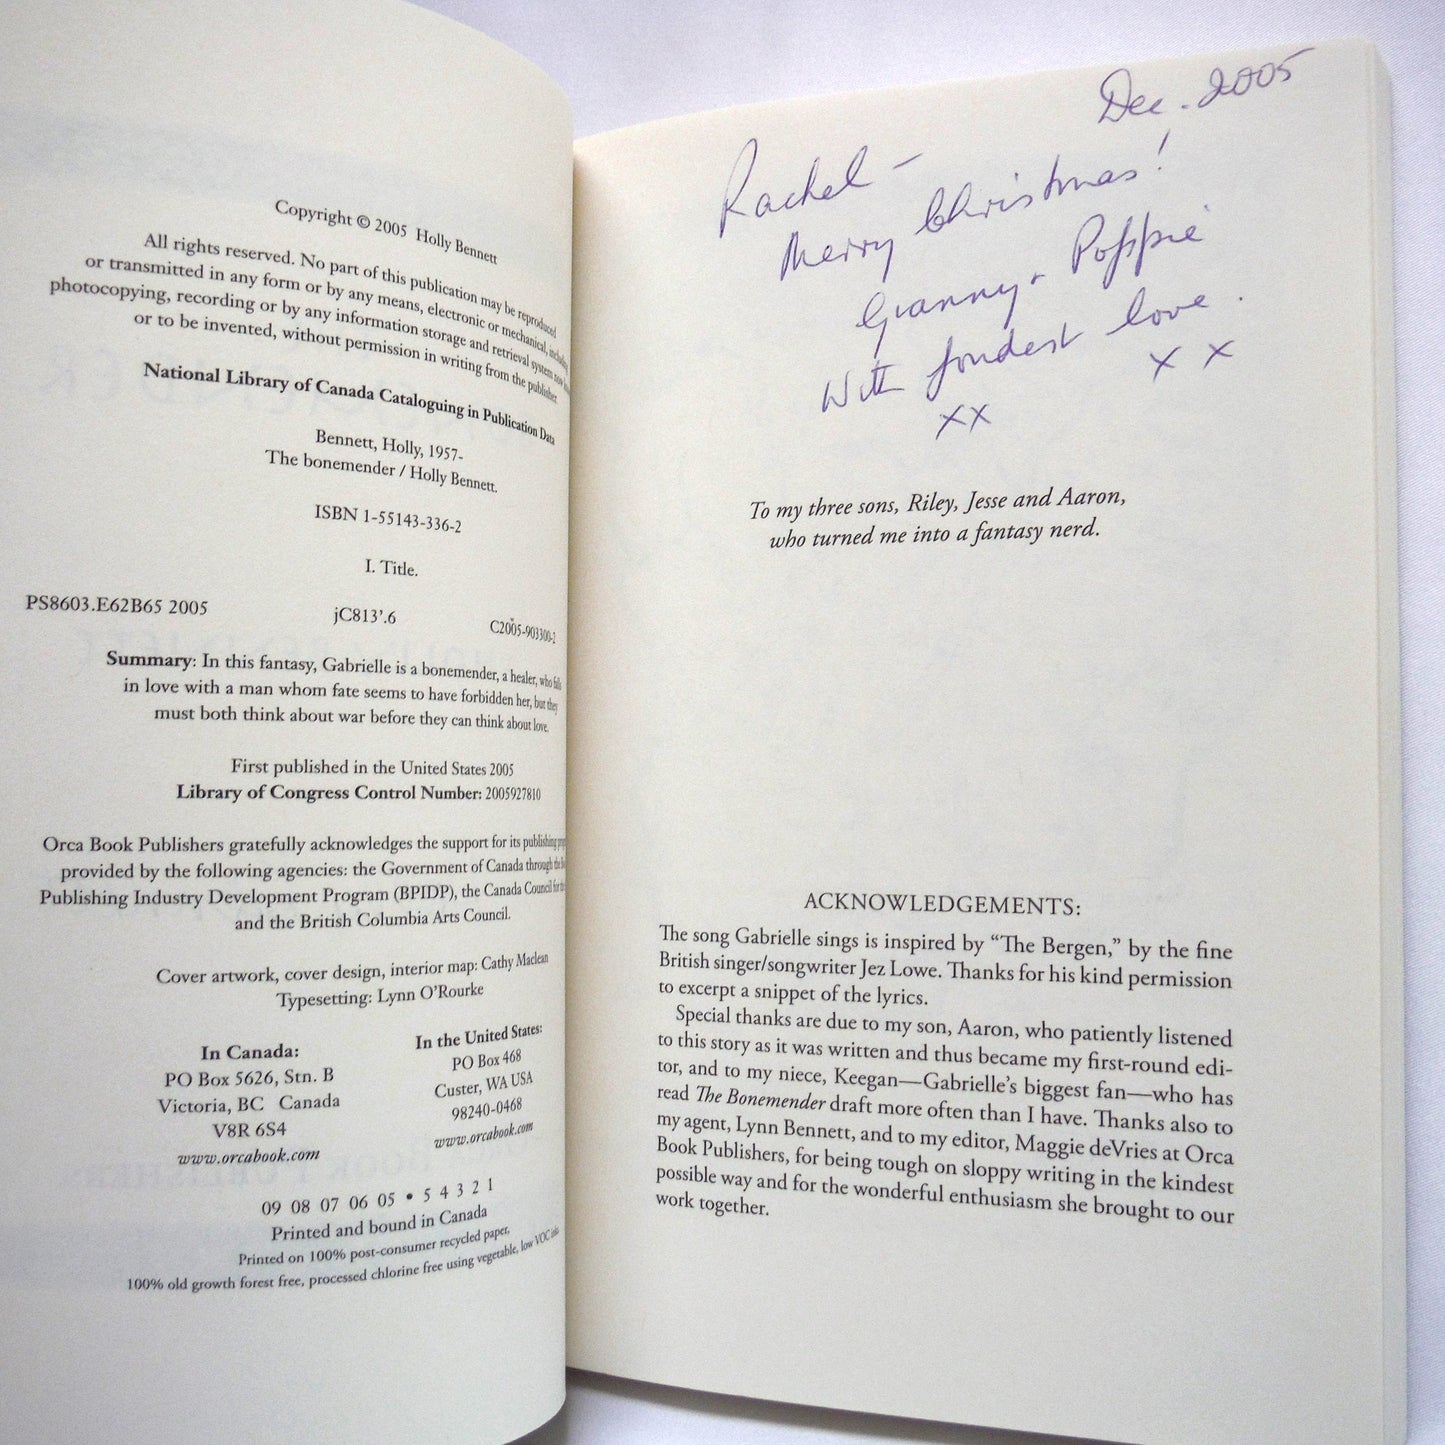 Copyright © 2005 Holly Bennett
All rights reserved. No part of this publication may be reproduced
or transmitted in any form or by any means, electronic or mechanical, including
photocopying, recording or by any information storage and retrieval system now
or to be invented, without permission in writing from the publisher.
National Library of Canada Cataloguing in Publication Data
Bennett, Holly, 1957-
The bonemender / Holly Bennett.
ISBN 1-55143-336-2
I. Title.
PS8603.E62B65 2005 jC813'.6 C2005-903300-2
Summary: In this fantasy, Gabrielle is a bonemender, a healer, who falls
in love with a man whom fate seems to have forbidden her, but they
must both think about war before they can think about love.
First published in the United States 2005
Library of Congress Control Number: 2005927810
Orca Book Publishers gratefully acknowledges the support for its publishing
provided by the following agencies: the Government of Canada through the
Publishing Industry Development Program (BPIDP), the Canada Council for
and the British Columbia Arts Council.
Cover artwork, cover design, interior map: Cathy Maclean
Typesetting: Lynn O'Rourke
In Canada:
PO Box 5626, Stn. B
Victoria, BC Canada
V8R 6S4
www.orcabook.com
In the United States:
PO Box 468
Custer, WA USA
98240-0468
www.orcabook.com
09 08 07 06 05 • 5 4 3 2 1
Printed and bound in Canada
Printed on 100% post-consumer recycled paper,
100% old growth forest free, processed chlorine free using vegetable, low VOC inks
Dec. 2005
Rachel –
Merry Christmas!
Granny + Poppie
With fondest love.
xx x x
To my three sons, Riley, Jesse and Aaron,
who turned me into a fantasy nerd.
ACKNOWLEDGEMENTS:
The song Gabrielle sings is inspired by “The Bergen,” by the fine
British singer/songwriter Jez Lowe. Thanks for his kind permission
to excerpt a snippet of the lyrics.
Special thanks are due to my son, Aaron, who patiently listened
to this story as it was written and thus became my first-round edi-
tor, and to my niece, Keegan—Gabrielle’s biggest fan—who has
read The Bonemender draft more often than I have. Thanks also to
my agent, Lynn Bennett, and to my editor, Maggie deVries at Orca
Book Publishers, for being tough on sloppy writing in the kindest
possible way and for the wonderful enthusiasm she brought to our
work together.